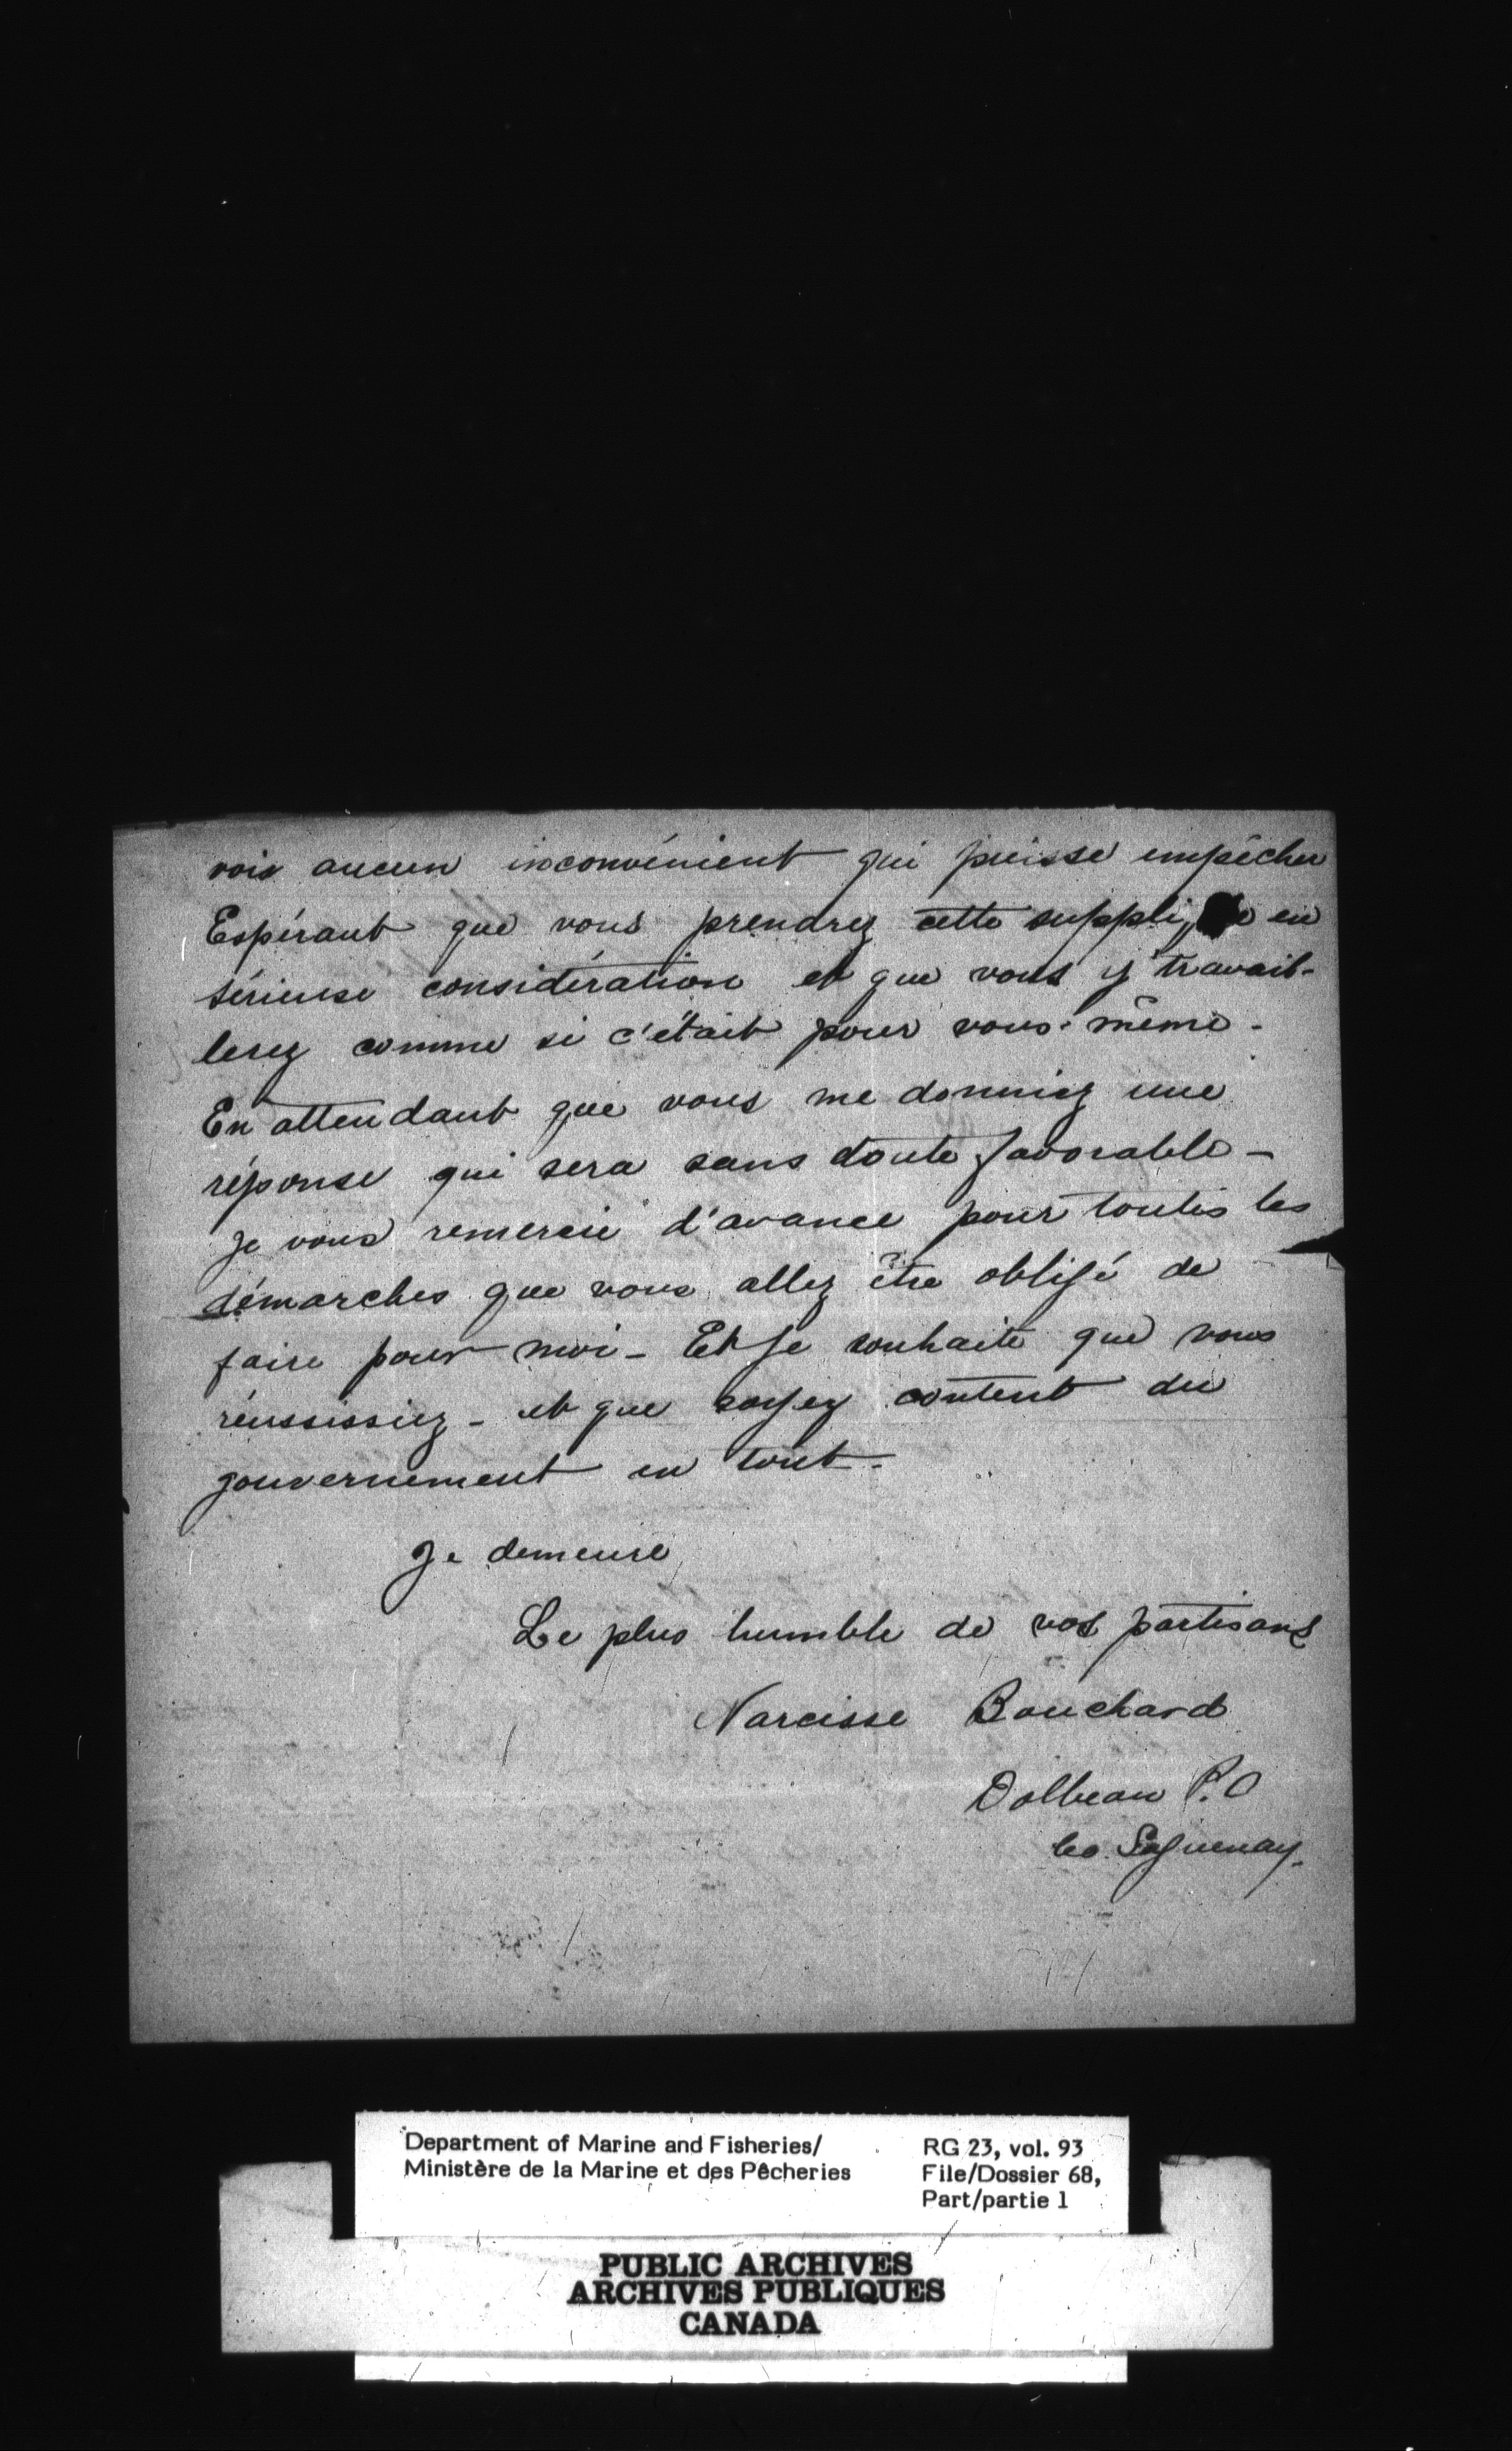 vois aucun inconvénient qui puisse empêcher
Espérant que vous prendrez cette en
sérieuse considération et que vous y travail-
lerez comme si c'était pour vous-même.
En attendant que vous me donniez une
réponse qui sera sans doute favorable -
Je vous remercie d'avance pour toutes les
démarches que vous allez être obligé de
faire pour moi - Et Je souhaite que vous
réussissiez - et que soyez content du
gouvernement en tout.
Je demeure
Le plus humble de vos partisans
Narcisse Bouchard
Dolbeau P.O
Co. Saguenay.
Department of Marine and Fisheries/
Ministère de la Marine et des Pêcheries
RG 23, vol. 93
File/Dossier 68,
Part/partie 1
PUBLIC ARCHIVES
ARCHIVES PUBLIQUES
CANADA